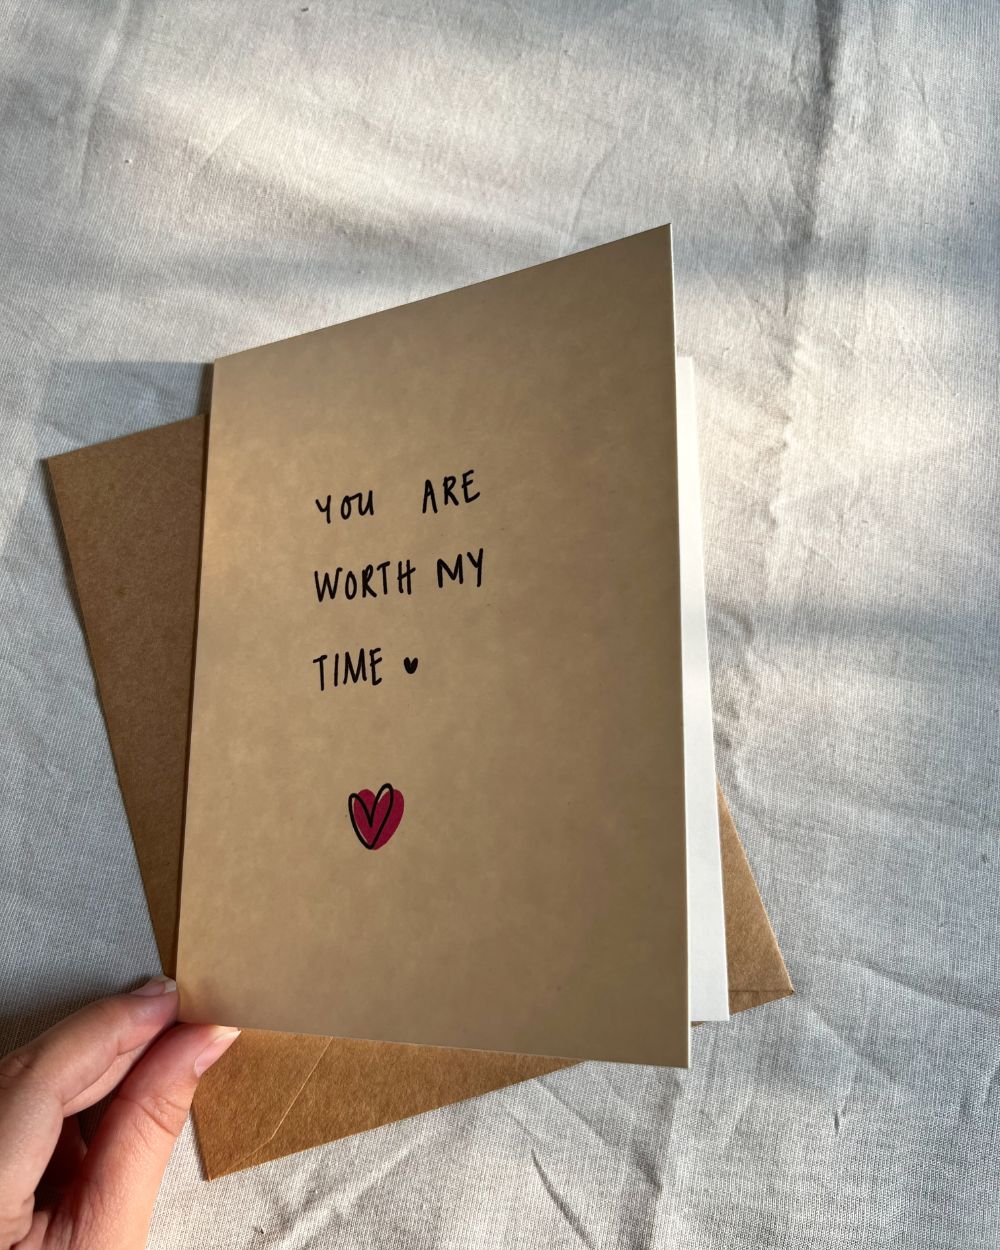 YOU ARE
WORTH MY
TIME ♥